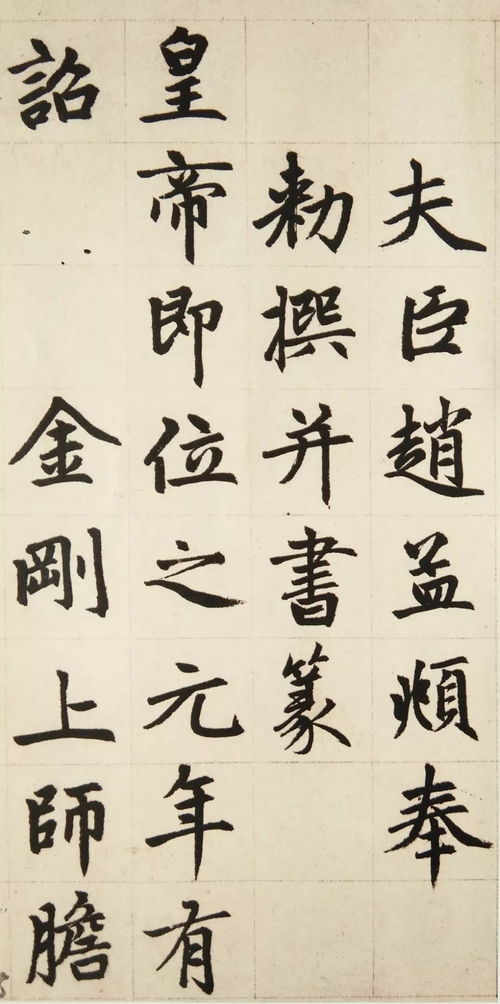 夫臣趙孟頫奉
勅撰并書篆
皇帝即位之元年有
詔 金剛上師膽